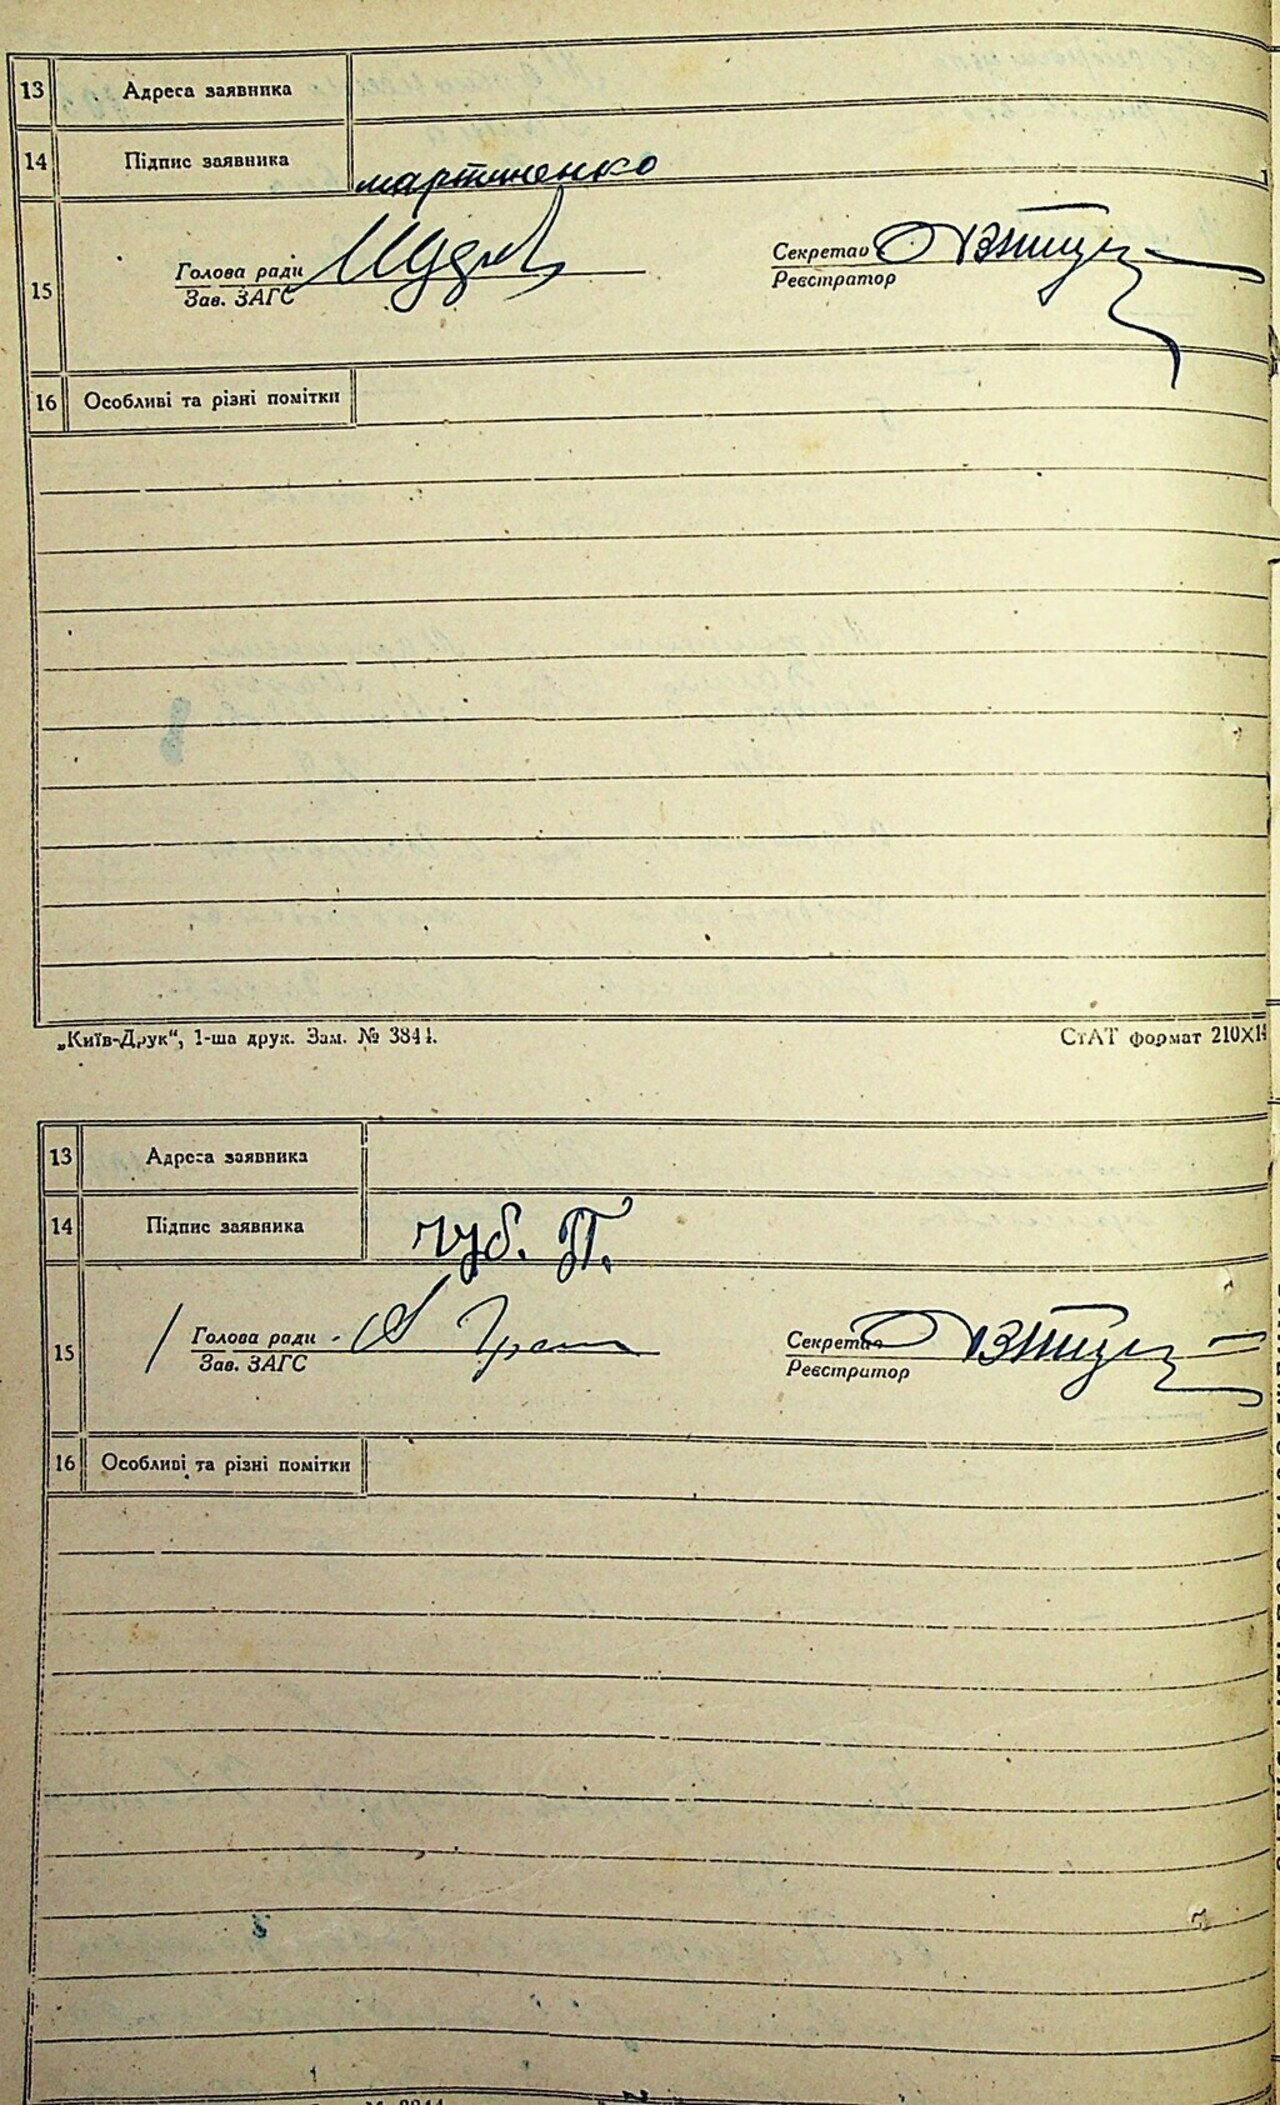 13 Адреса заявника
14 Підпис заявника мартиненко
15 Голова ради Секретар
Зав. ЗАГС Реєстратор
16 Особливі та різні помітки
„Київ-Друк“, 1-ша друк. Зам. № 3844. СтАТ формат 210X14
13 Адреса заявника
14 Підпис заявника Чуб. П.
15 Голова ради Секретар
Зав. ЗАГС Реєстратор
16 Особливі та різні помітки